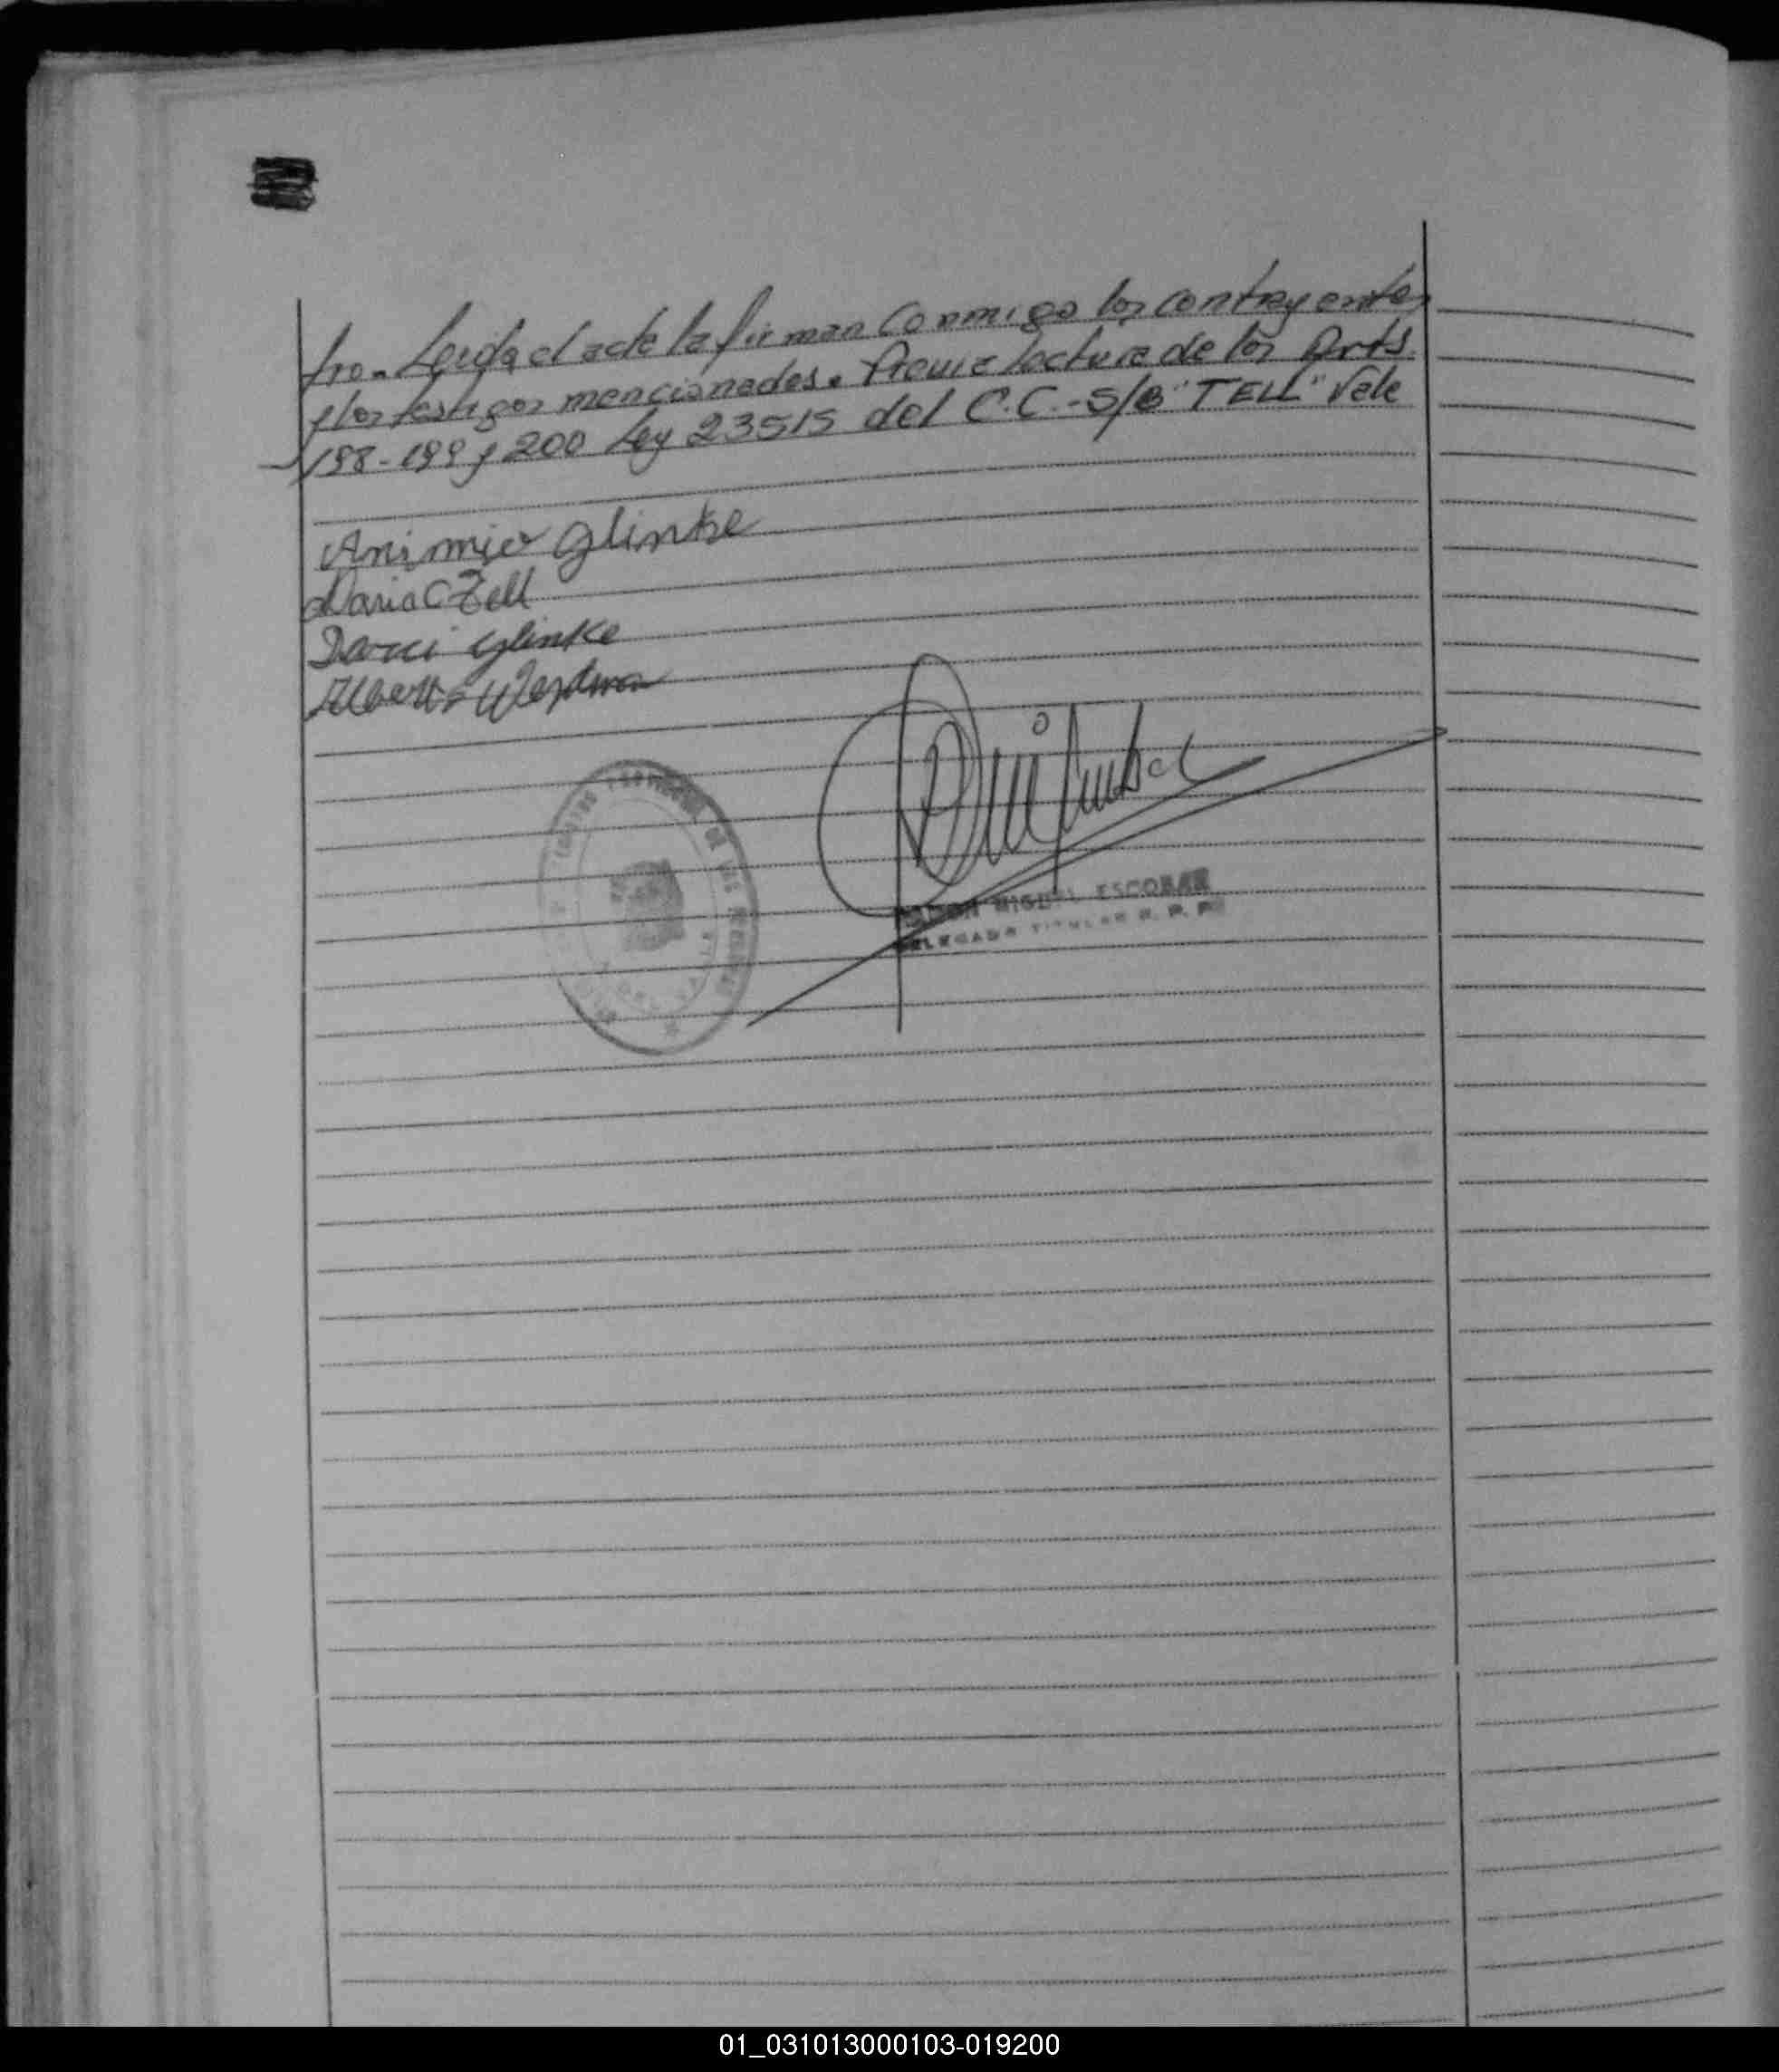 tro.- Leida el acta la firman conmigo los contrayentes
y los testigos mencionados. Previa lectura de los Arts.
198-199 y 200 Ley 23515 del C.C.-S/B "TELL" Vale
Animcio Glinke
Maria C Tell
Darci Glinke
Alberto
MIGUEL ESCOBAR
DELEGADO TITULAR R. P. P
01_031013000103-019200